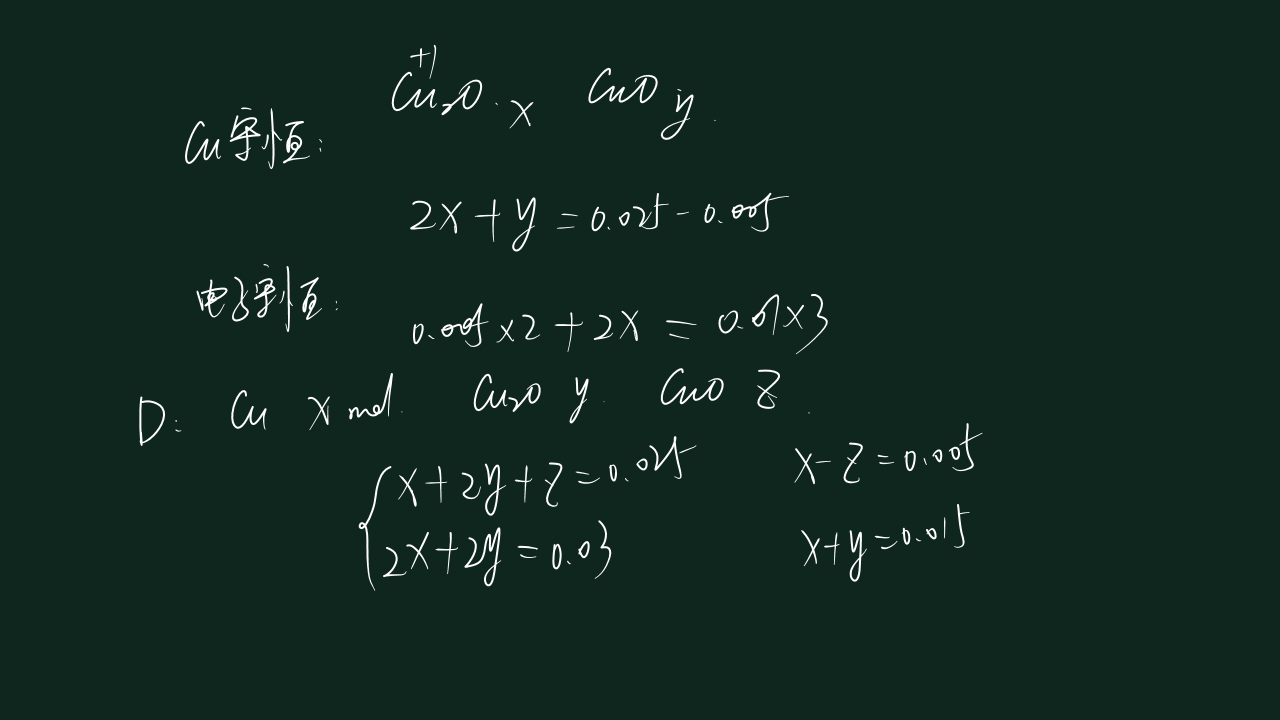 +1
Cu₂O · x CuO y
Cu守恒:
2x + y = 0.025 - 0.005
电子守恒:
0.005 × 2 + 2x = 0.01 × 3
D: Cu x mol. Cu₂O y. CuO z.
x + 2y + z = 0.025 x - z = 0.005
2x + 2y = 0.03 x + y = 0.015